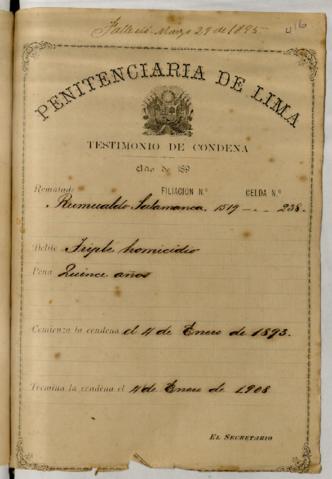 Falleció Marzo 29 de 1895
416
PENITENCIARIA DE LIMA
TESTIMONIO DE CONDENA
Año de 189
Rematado FILIACION N.º CELDA N.º
Rumualdo Salamanca. 1519 - . - 238.
Delito Triple homicidio
Pena Quince años
Comienza la condena el 4 de Enero de 1893.
Termina la condena el 4 de Enero de 1908
EL SECRETARIO